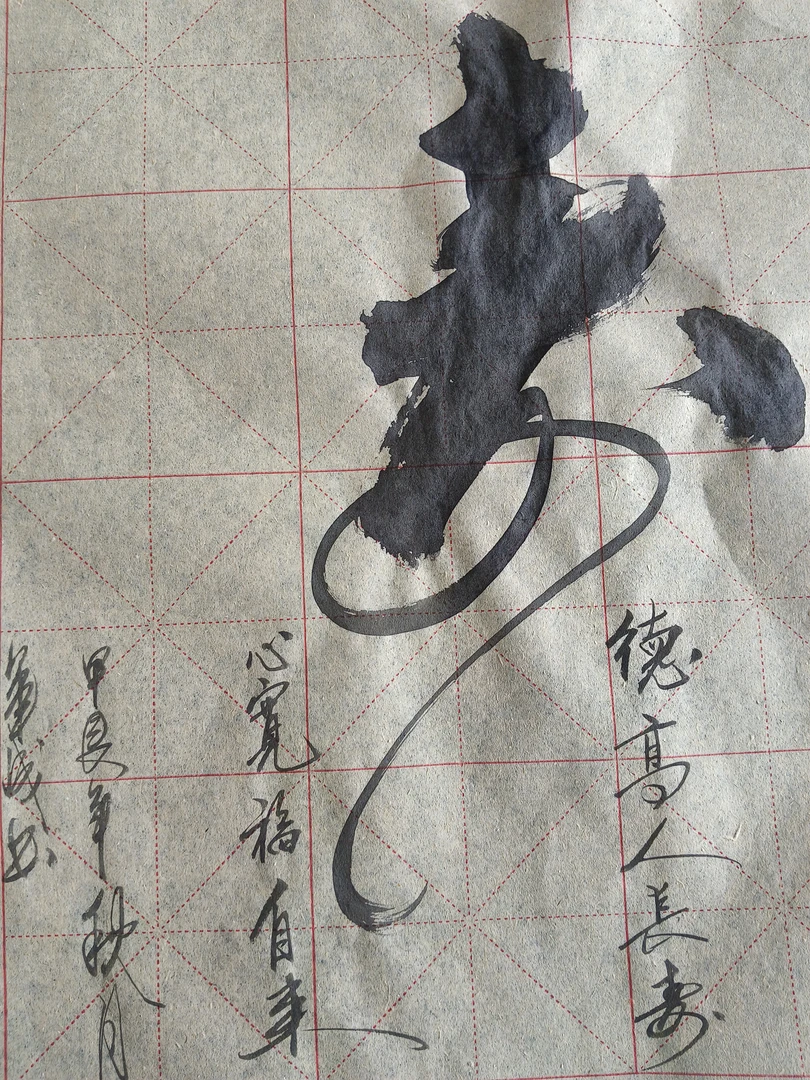 寿
德高人长寿
心寬福自来
甲辰年秋月
书